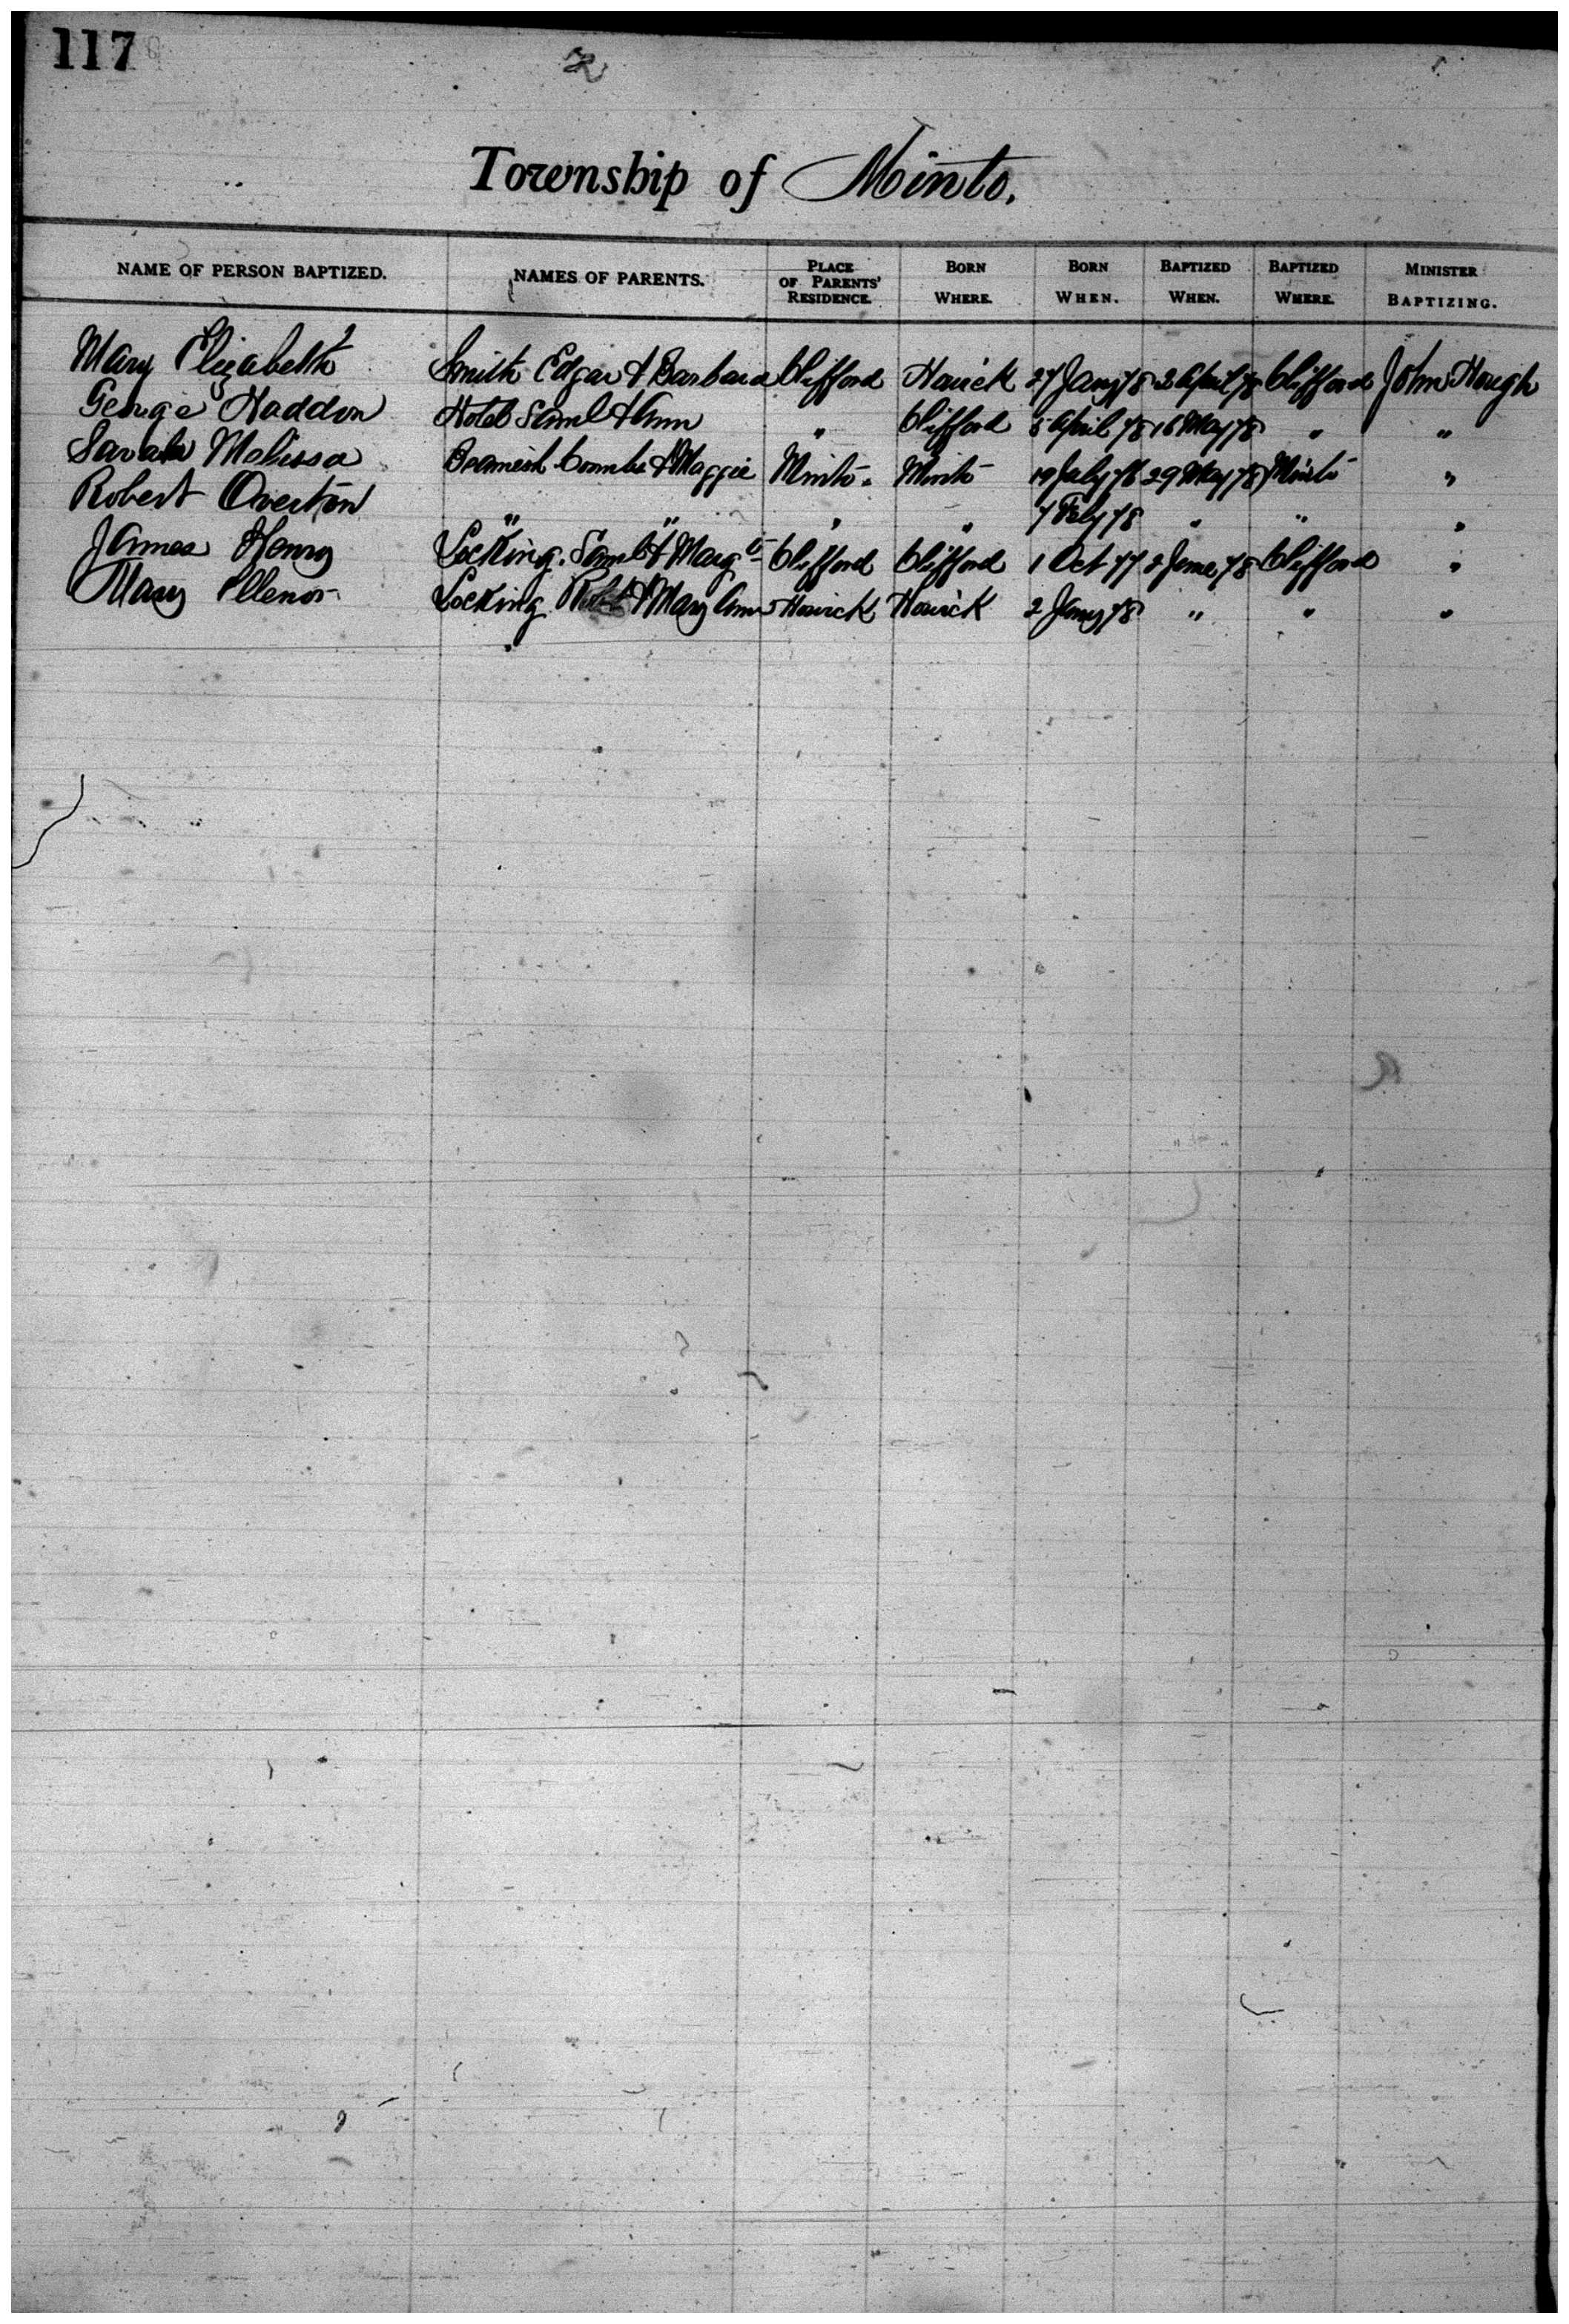 117
Township of Minto.
NAME OF PERSON BAPTIZED. NAMES OF PARENTS. PLACE OF PARENTS' RESIDENCE. BORN WHERE. BORN WHEN. BAPTIZED WHEN. BAPTIZED WHERE. MINISTER BAPTIZING.
Mary Elizabeth Smith Edgar & Barbara Clifford Howick 27 Jany 78 2 April 78 Clifford John Hough
George Haddon Saml & Ann " Clifford 5 April 78 16 May 78 " "
Sarah Melissa Beamish & Maggie Minto. Minto 19 July 76 29 May 78 Minto "
Robert Overton " " " " 7 Feby 78 " " "
James Henry Locking. Saml & Margt Clifford Clifford 1 Oct 77 2 June 78 Clifford "
Mary Ellenor Locking Robt & Mary Ann Howick Howick 2 Jany 78 " " "